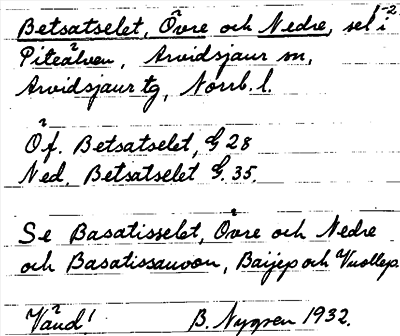 Betsatselet, Övre och Nedre, sel i 1-2
Piteälven, Arvidsjaur sn,
Arvidsjaur tg, Norrb. l.
Öf. Betsatselet, G 28
Ned. Betsatselet G. 35.
Se Basatisselet, Övre och Nedre
och Basatissauvon, Baijep och Vuollep.
Vänd! B. Nygren 1932.